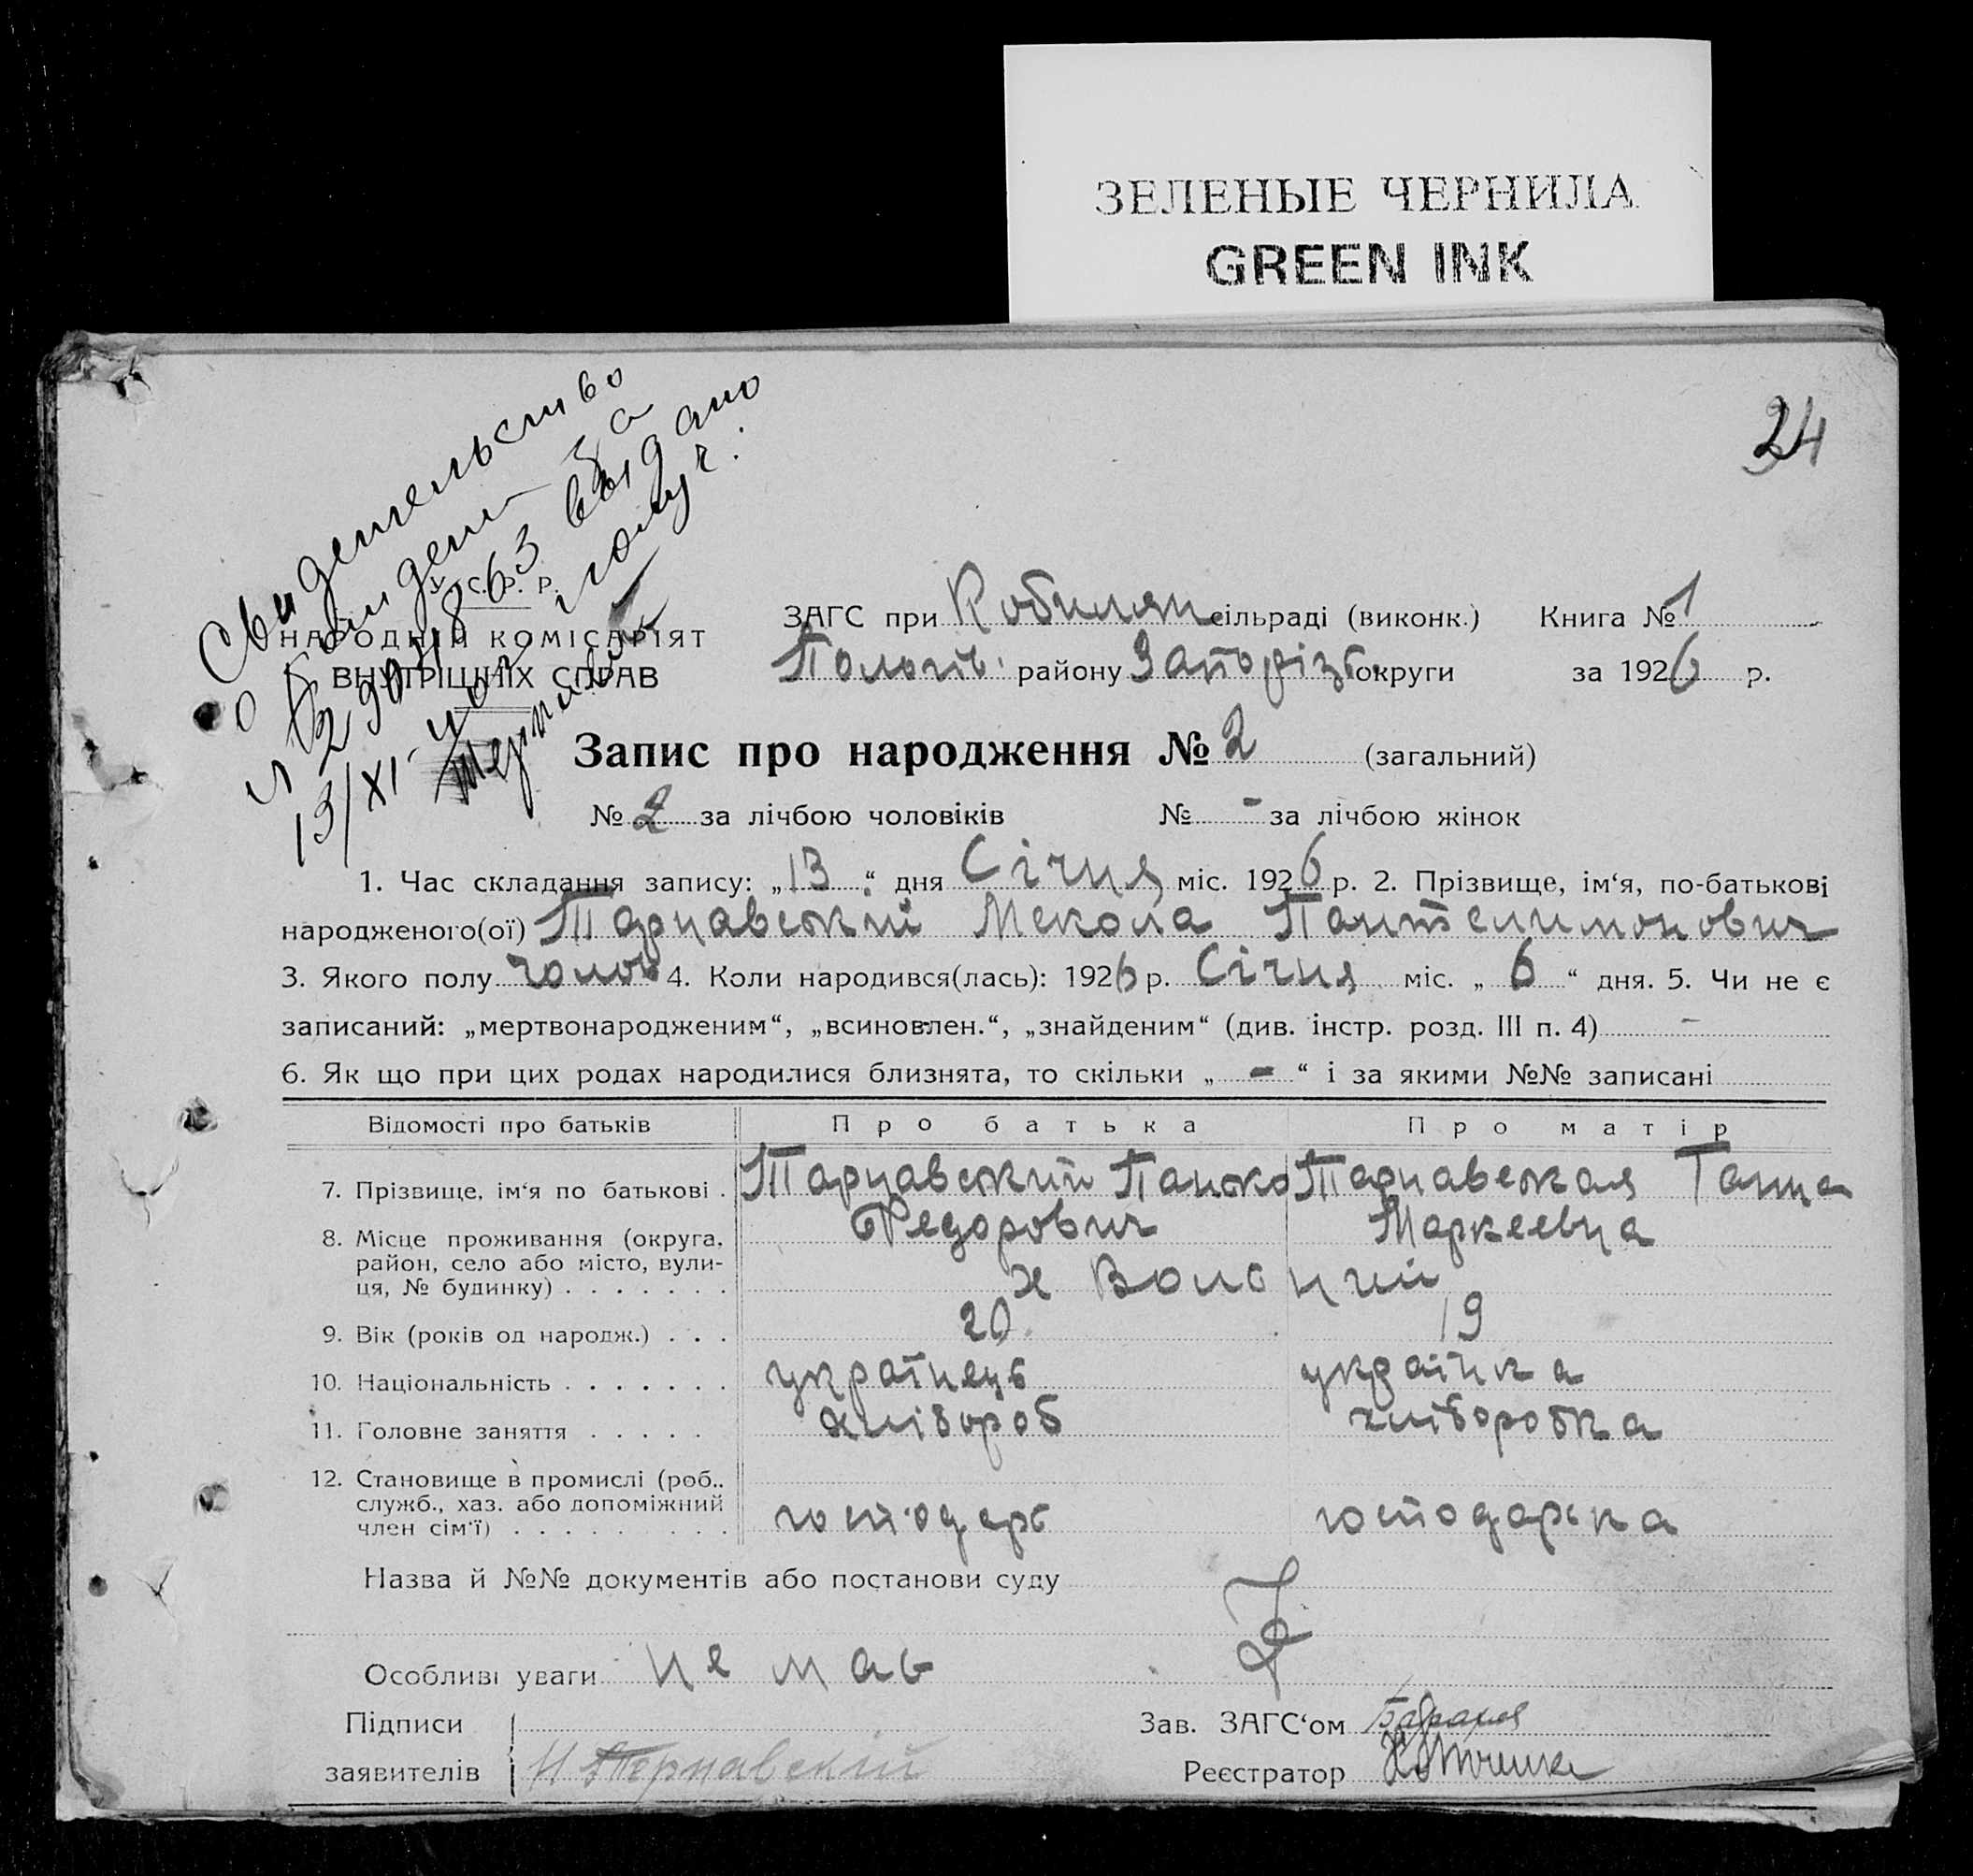 ЗЕЛЕНЫЕ ЧЕРНИЛА
GREEN INK
24
Свидетельство
о
за
выдано
13/XI-
получ.
У. С. Р. Р.
НАРОДНІЙ КОМІСАРІЯТ
ВНУТРІШНІХ СПРАВ
ЗАГС при Кобилян сільраді (виконк.) Книга № 1
Пологів. району Запоріз. округи за 1926 р.
Запис про народження № 2 (загальний)
№ 2 за лічбою чоловіків № - за лічбою жінок
1. Час складання запису: „13“ дня Січня міс. 1926 р. 2. Прізвище, ім‘я, по-батькові
народженого(ої) Тарнавский Мекола Пантелимонович
3. Якого полу чолов 4. Коли народився(лась): 1926 р. Січня міс. „6“ дня. 5. Чи не є
записаний: „мертвонародженим“, „всиновлен.“, „знайденим“ (див. інстр. розд. III п. 4) -
6. Як що при цих родах народилися близнята, то скільки „-“ і за якими №№ записані
Відомості про батьків Про батька Про матір
7. Прізвище, ім‘я по батькові . Тарнавский Панько Тарнавская Ганна
Федорович Маркеевна
8. Місце проживання (округа,
район, село або місто, вули-
ця, № будинку) . . . . . . . х
9. Вік (років од народж.) . . . 20 19
10. Національність . . . . . . . українець українка
11. Головне заняття . . . . . хлібороб хліборобка
12. Становище в промислі (роб.,
служб., хаз. або допоміжний
член сім‘ї) . . . . . . . . . господарь господарька
Назва й №№ документів або постанови суду
Особливі уваги не має
Підписи Зав. ЗАГС‘ом
заявителів Реєстратор